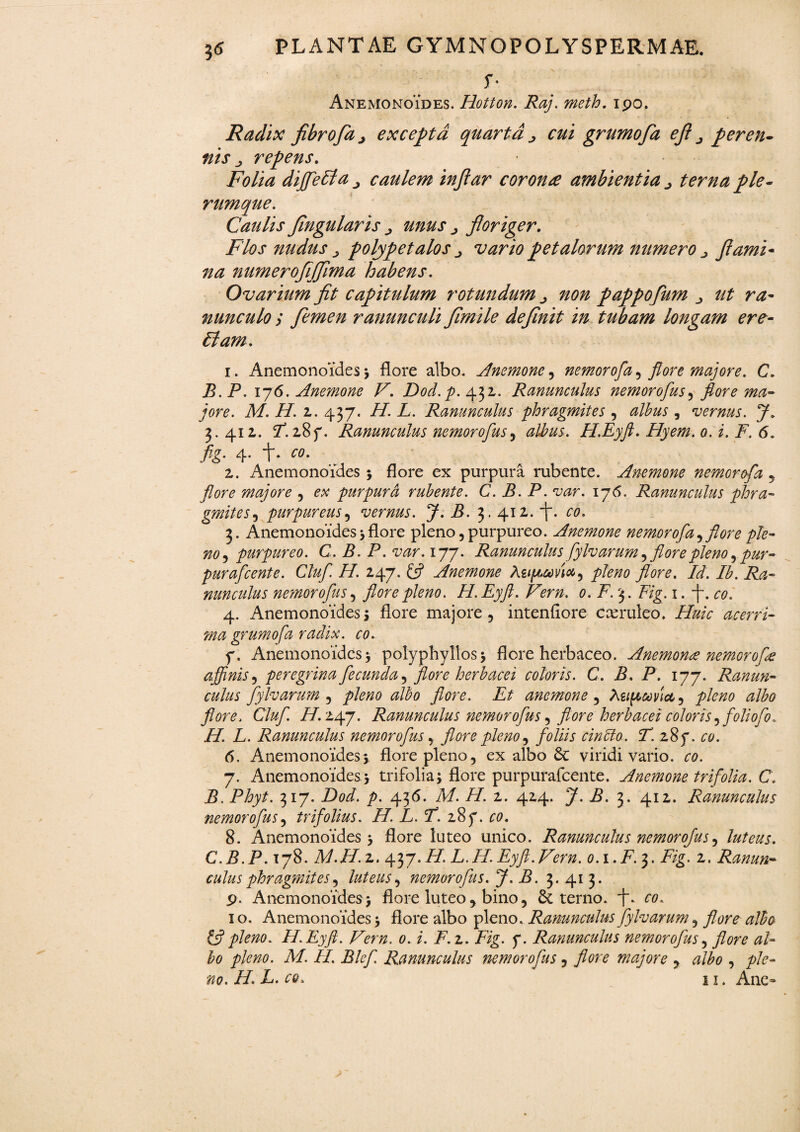 36 PLANTAE GYMNOPOLYSPERMAE.
5.
ANEMONOÏDES. Hotton. Raj. meth. 190.
Radix fibrosa, exceptâ quartâ, cui grumosa est, peren-
nis, repens.
Folia dissecta, caulem instar coronæ ambientia, terna ple-
rumque.
Caulis singularis, unus, floriger.
Flos nudus, polypetalos, vario petalorum numero, stami-
na numerosissima habens.
Ovarium fit capitulum rotundum, non papposum, ut ra-
nunculo; semen ranunculi simile definit in tubam longam ere-
ctam.
1. Anemonoïdes; flore albo. Anemone, nemorosa, flore majore. C.
B. P. 176. Anemone V. Dod. p. 432. Ranunculus nemorosus, flore ma-
jore. M. H. 2. 437. H. L. Ranunculus phragmites, albus, vernus. J.
3. 412. T. 285. Ranunculus nemorosus, albus. H.Eyst. Hyem. o. i. F. 6.
fig. 4. †. co.
2. Anemonoïdes; flore ex purpurâ rubente. Anemone nemorosa,
flore majore, ex purpurâ rubente. C. B. P. var. 176. Ranunculus phra-
gmites, purpureus, vernus. J. B. 3. 412. †. co.
3. Anemonoïdes; flore pleno, purpureo. Anemone nemorosa, flore ple-
no, purpureo. C. B. P. var. 177. Ranunculus sylvarum, flore pleno, pur-
purascente. Clus. H. 247. & Anemone λειμωνία, pleno flore. Id. Ib. Ra-
nunculus nemorosus, flore pleno. H. Eyst. Vern. o. F. 3. Fig. 1. †. co.
4. Anemonoïdes; flore majore, intensiore cæruleo. Huic acerri-
ma grumosa radix. co.
5. Anemonoïdes; polyphyllos; flore herbaceo. Anemonæ nemorosæ
affinis, peregrina fecunda, flore herbacei coloris. C. B. P. 177. Ranun-
culus sylvarum, pleno albo flore. Et anemone, λειμωνία, pleno albo
flore. Clus. H. 247. Ranunculus nemorosus, flore herbacei coloris, folioso.
H. L. Ranunculus nemorosus, flore pleno, foliis cincto. T. 285. co.
6. Anemonoïdes; flore pleno, ex albo & viridi vario. co.
7. Anemonoïdes; trifolia; flore purpurascente. Anemone trifolia. C.
B. Phyt. 317. Dod. p. 436. M. H. 2. 424. J. B. 3. 412. Ranunculus
nemorosus, trifolius. H. L. T. 285. co.
8. Anemonoïdes; flore luteo unico. Ranunculus nemorosus, luteus.
C. B. P. 178. M.H. 2. 437. H. L. H. Eyst. Vern. o. 1. F. 3. Fig. 2. Ranun-
culus phragmites, luteus, nemorosus. J. B. 3. 413.
9. Anemonoïdes; flore luteo, bino, & terno. †. co.
10. Anemonoïdes; flore albo pleno. Ranunculus sylvarum, flore albo
& pleno. H. Eyst. Vern. o. i. F. 2. Fig. 5. Ranunculus nemorosus, flore al-
bo pleno. M. H. Bles. Ranunculus nemorosus, flore majore, albo, ple-
no. H. L. co.
11. Ane-